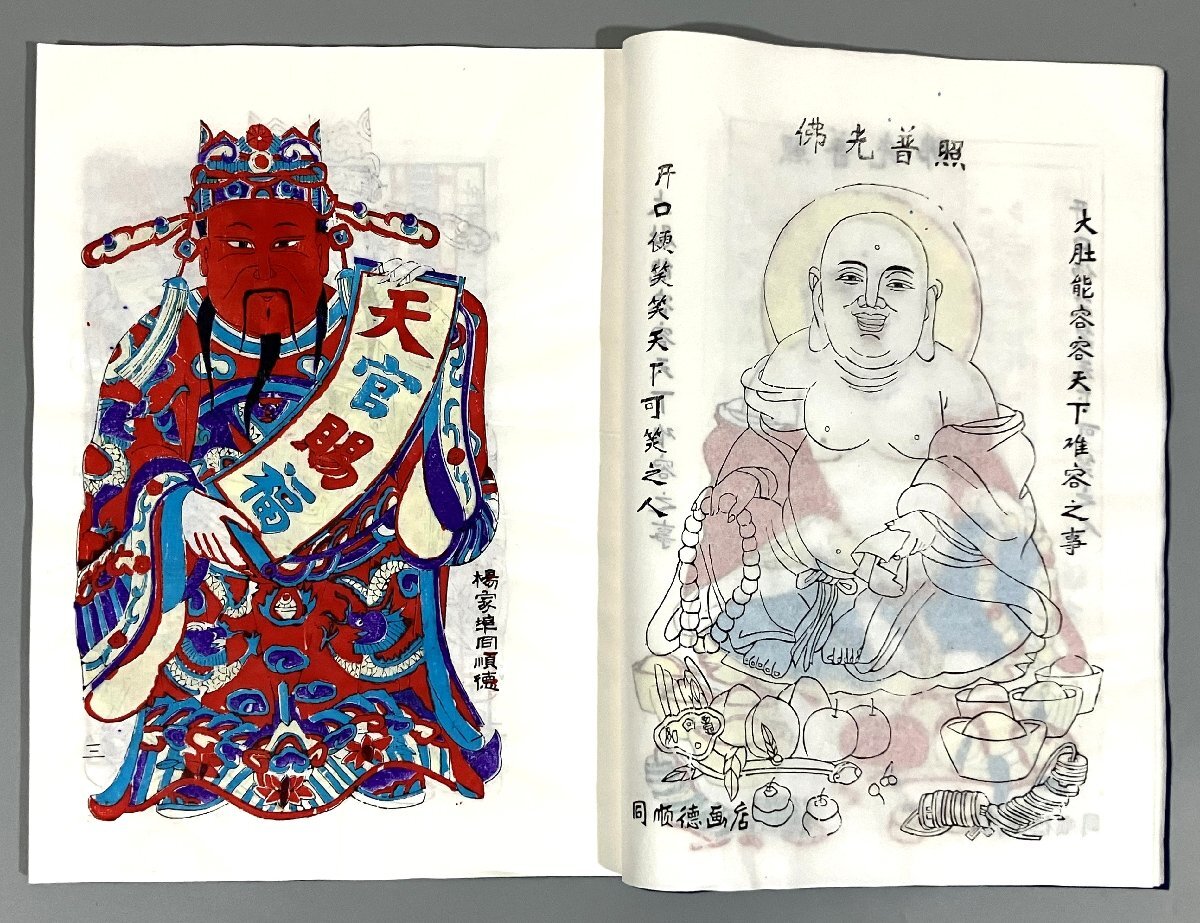 天官賜福
楊家埠同順德
三
佛光普照
大肚能容容天下难容之事
开口便笑笑天下可笑之人
同顺德画店